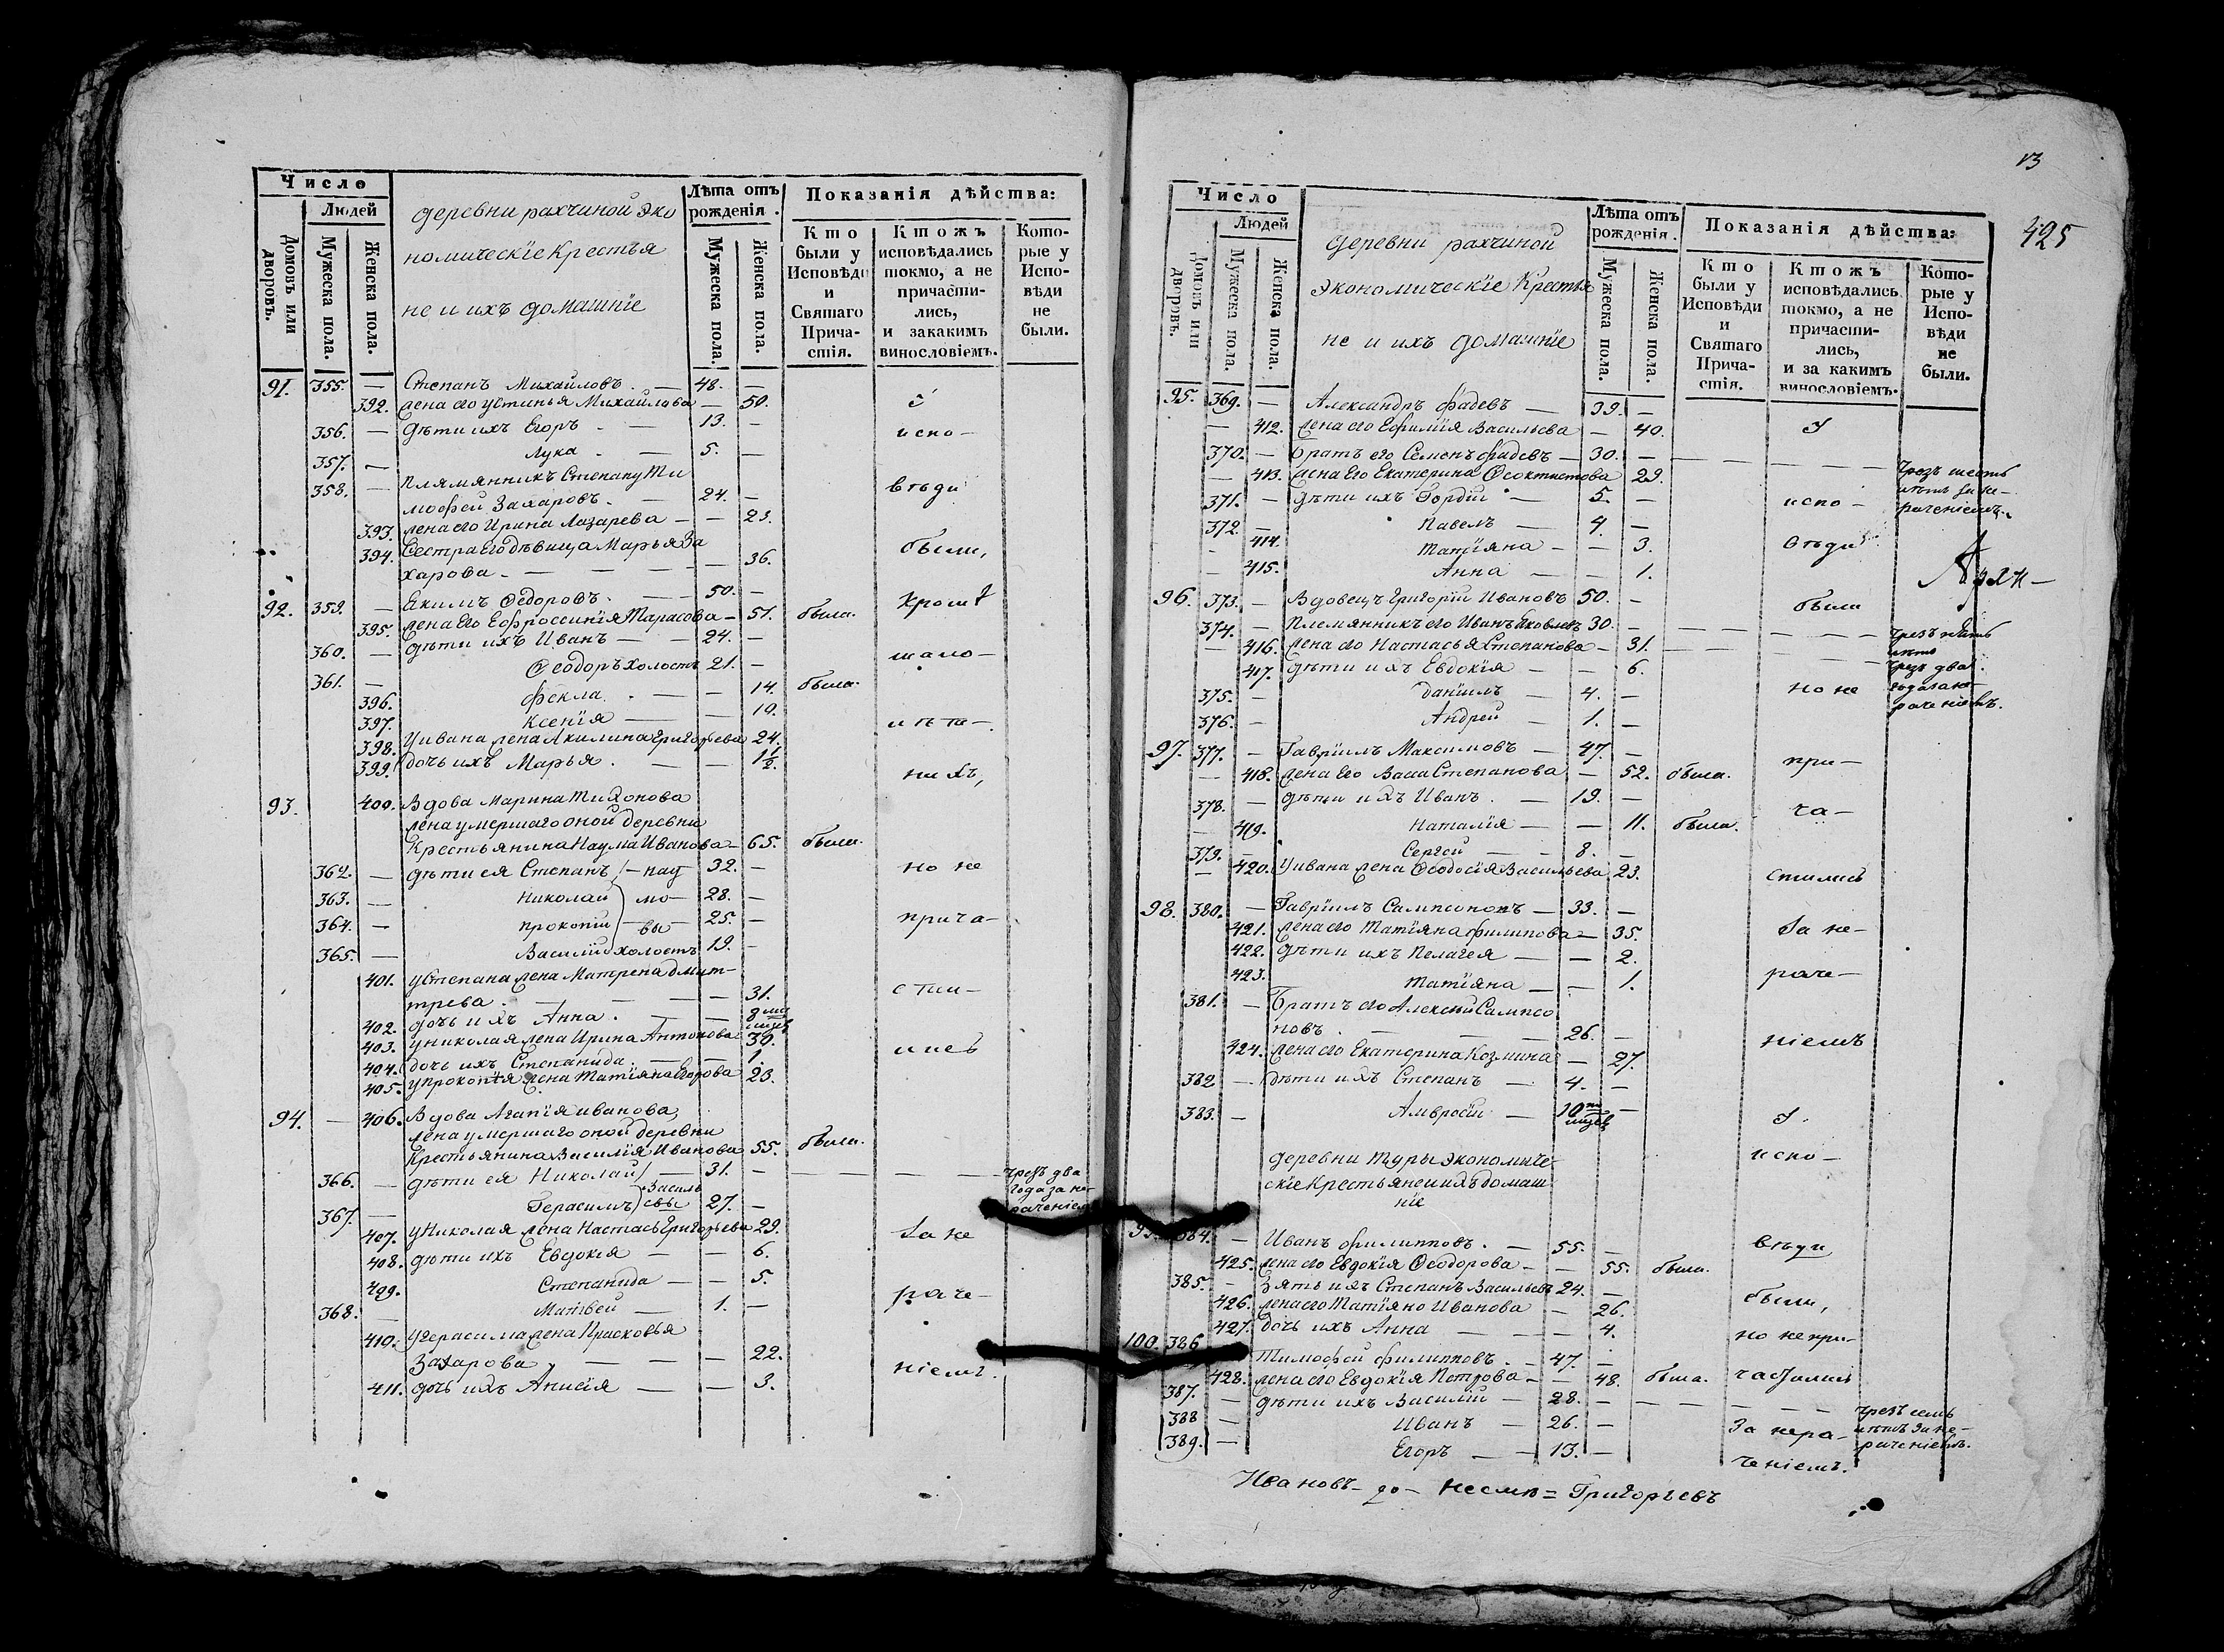 Число
Людей
Домовъ или дворовъ.
Мужеска пола.
Женска пола.
деревни рахчиной эко
номическїе Крестья
не и ихъ домашнїе
Лѣта отъ рожденія.
Мужеска пола.
Женска пола.
Показанія дѣйства:
Кто были у Исповѣди и Святаго Причастія.
Ктожъ исповѣдались токмо, а не причастились, и закакимъ винословіемъ.
Которые у Исповѣди не были.
91. 355. — Степанъ Михайловъ. — 48. —
392. жена его Устинья Михайлова — 50.
356. — Дѣти ихъ Егоръ — 13. — испо—
357. — Лука — 5. —
358. — Плямянникъ Степану Ти
мофей Захаровъ. — 24. — вѣди
393. жена его Ирина Лазарева — — 23.
394. Сестра Его дѣвица Марья За
харова — — — — 36. были,
92. 359. — Екимъ Ѳедоровъ. — 50. — Кроме
395. жена Его Ефроссинїя Тарасова — 51. была.
360. — дѣти ихъ Иванъ — — 24. —
361. — Ѳеодоръ холостъ 21. —
396. Фекла — — 14. была.
397. Ксенїя — — 10.
398. У ивана жена Акилина Григорьева 24.
399. дочь ихъ Марья. — — 1½.
93. 400. Вдова Марина Тихонова
жена умершаго оной деревни
Крестьянина Наума Иванова — 65. была.
362. — дѣти ея Степанъ — нау 32. — но не
363. — Николай мо— 28. —
364. — прокопїй — вы — 25. — прича—
365. — Василїй холостъ 19. —
401. у Степана жена Матрена дмит—
трева. — — — — 31. сти—
402. дочь ихъ Анна. — —
403. у николая жена Ирина Антонова 30.
404. дочь ихъ Степанида. — — 1.
405. у прокопїя жена Татїяна Егорова 23.
94. — 406. Вдова Агапїя иванова,
жена умершаго оной деревни
Крестьянина Василїя Иванова 55. была.
366. — дѣти ея Николай — 31. — чрезъ два года за не раченіем
367. — Герасимъ Василь евы 27. —
407. у Николая жена Настасья Григорьева 29. за не
408. дѣти ихъ Евдокїя — — 6.
409. Степанида — — 5. раче—
368. — Матвей — 1. —
410. у герасима жена Прасковья
Захарова, — — — 22.
411. дочь ихъ Анисїя — — 3. ніемъ.
13
425
Число
Людей
Домовъ или дворовъ.
Мужеска пола.
Женска пола.
деревни рахчиной
экономическїе Крестья
не и ихъ домашнїе
Лѣта отъ рожденія.
Мужеска пола.
Женска пола.
Показанія дѣйства:
Кто были у Исповѣди и Святаго Причастія.
Ктожъ исповѣдались токмо, а не причастились, и за какимъ винословіемъ.
Которые у Исповѣди не были.
95. 369. — Александръ Фадевъ — 39. —
— 412. жена его Ефимїя Васильева — 40.
370. — Братъ его Семенъ Фадевъ — 30. — чрезъ шесть лѣтъ за не— раченіемъ.
— 413. жена Его Екатерина Ѳеоктистова 29.
371. — дѣти ихъ Гордїй — 5. — испо—
372. — Павелъ — 4. —
414. Татїяна — — 3. вѣди
415. Анна — — 1.
96. 373. — Вдовецъ Григорїй Ивановъ 50. — были
374. — Племянникъ его Иванъ Яковлевъ 30. — чрезъ пять лѣтъ
— 416. жена его Настасья Степанова — 31. чрезъ два года за не— раченіемъ.
417. дѣти ихъ Евдокїя — — 6.
375. — данїилъ — 4. — но не
376. — Андрей — 1. —
97. 377. — Гаврїилъ Максимовъ — 47. — при—
— 418. жена Его Васа Степанова — 52. была.
378. — дѣти ихъ Иванъ. — 19. — ча—
— 419. Наталїя — — 11. была.
379. — Сергей — — 8. —
— 420. У ивана жена Ѳеодосїя Васильева 23. стились
98. 380. — Гаврїилъ Сампсоновъ — 33. —
421. жена его Татїяна филипова — 35. За не—
422. дѣти ихъ Пелагея — — 2.
423. Татїяна — — 1. раче—
381. — Братъ его Алексей Сампсо
новъ. — — — 26. —
424. жена его Екатерина Козмина — 27. ніемъ
382 — дѣти ихъ Степанъ — 4. —
383. — Амвросїй — 10 —
деревни Туры экономиче— испо—
скїе Крестьяне и ихъ домаш
нїе
99. 384. — Иванъ филипповъ. — 55. — вѣди
425. жена его Евдокїя Ѳеодорова — — 55. была.
385. — Зять ихъ Степанъ Васильевъ 24. — были,
426. жена его Татїяно Иванова — 26.
427. дочь ихъ Анна — — — 4. но непри—
100. 386 Тимофей филипповъ. — 47. —
428. жена его Евдокїя Петрова — — 48. была. частились
387. — дѣти ихъ Василїй — 28. — чрезъ семь лѣтъ за не— раченіемъ.
388 — Иванъ — 26. — За нера—
389. — Егоръ — — 13. — ченіемъ.
Ивановъ — Григорьевъ